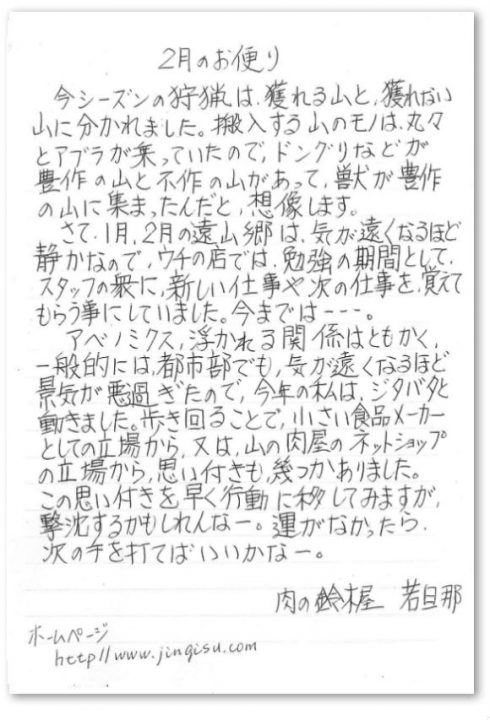 2月のお便り
今シーズンの狩猟は、獲れる山と、獲れない
山に分かれました。搬入する山のモノは、丸々
とアブラが乗っていたので、ドングリなどが
豊作の山と不作の山があって、獣が豊作
の山に集まったんだと、想像します。
さて、1月、2月の遠山郷は、気が遠くなるほど
静かなので、ウチの店では、勉強の期間として、
スタッフの衆に、新しい仕事や次の仕事を、覚えて
もらう事にしていました。今までは---。
アベノミクス、浮かれる関係はともかく、
一般的には、都市部でも、気が遠くなるほど
景気が悪過ぎたので、今年の私は、ジタバタと
動きました。歩き回ることで、小さい食品メーカー
としての立場から、又は、山の肉屋のネットショップ
の立場から、思い付きも、幾つかありました。
この思い付きを早く行動に移してみますが、
撃沈するかもしれんなー。運がなかったら、
次の手を打てばいいかなー。
肉の鈴木屋 若旦那
ホームページ
http//www.jingisu.com